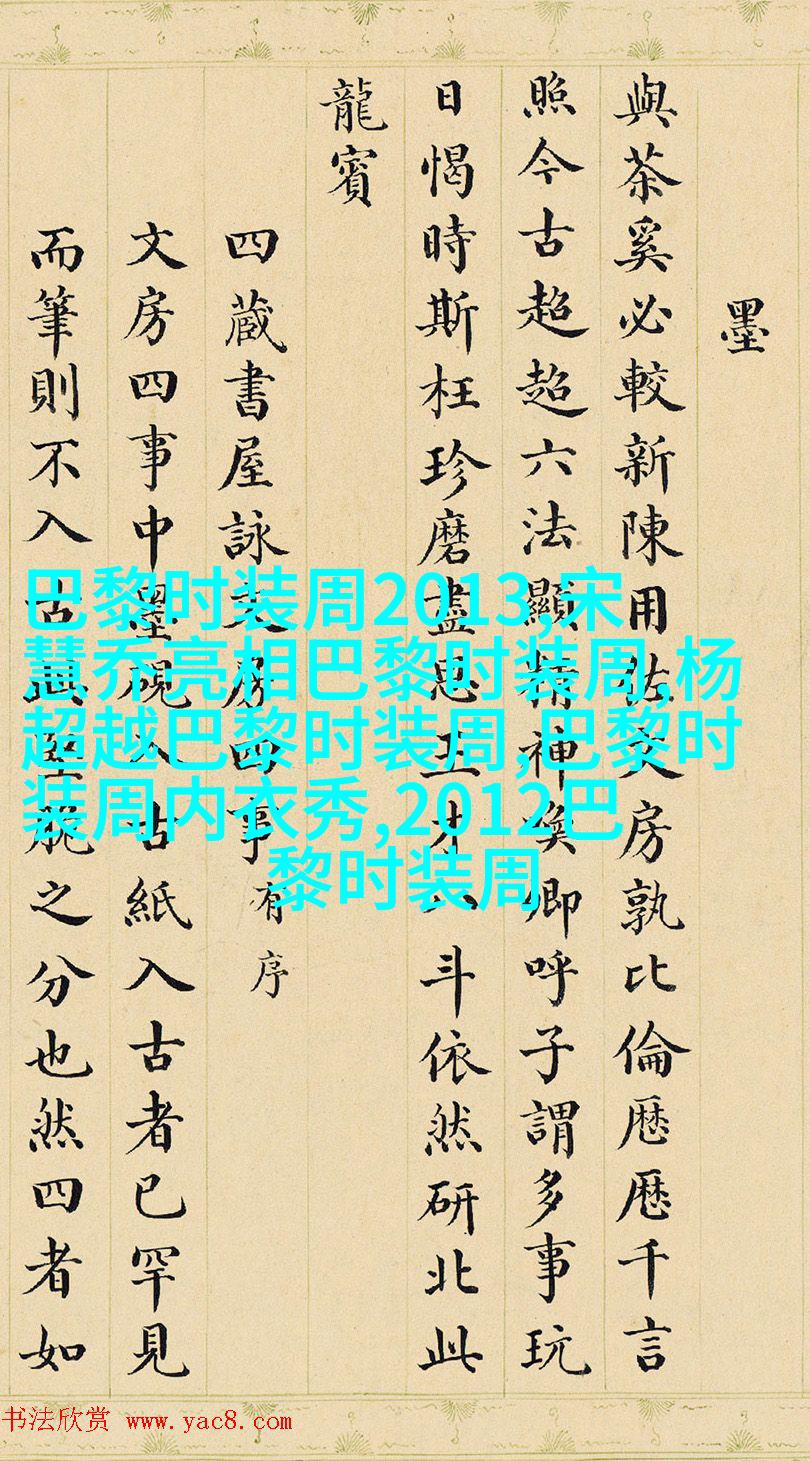 墨
與茶奚必較新陳用佐文房孰比倫厯厯千言
照今古超超六法顯精神喚卿呼子謂多事玩
日愒時斯枉珍磨盡思王才八斗依然研北此
龍賓
四蔵書屋詠文房四事有序
文房四事中墨硯入古紙入古者已罕見
而筆則不入古堅脆之分也然四者如
巴黎时装周2013,宋
慧乔亮相巴黎时装周,杨
超越巴黎时装周,巴黎时
装周内衣秀,2012巴
黎时装周
书法欣赏 www.yac8.com